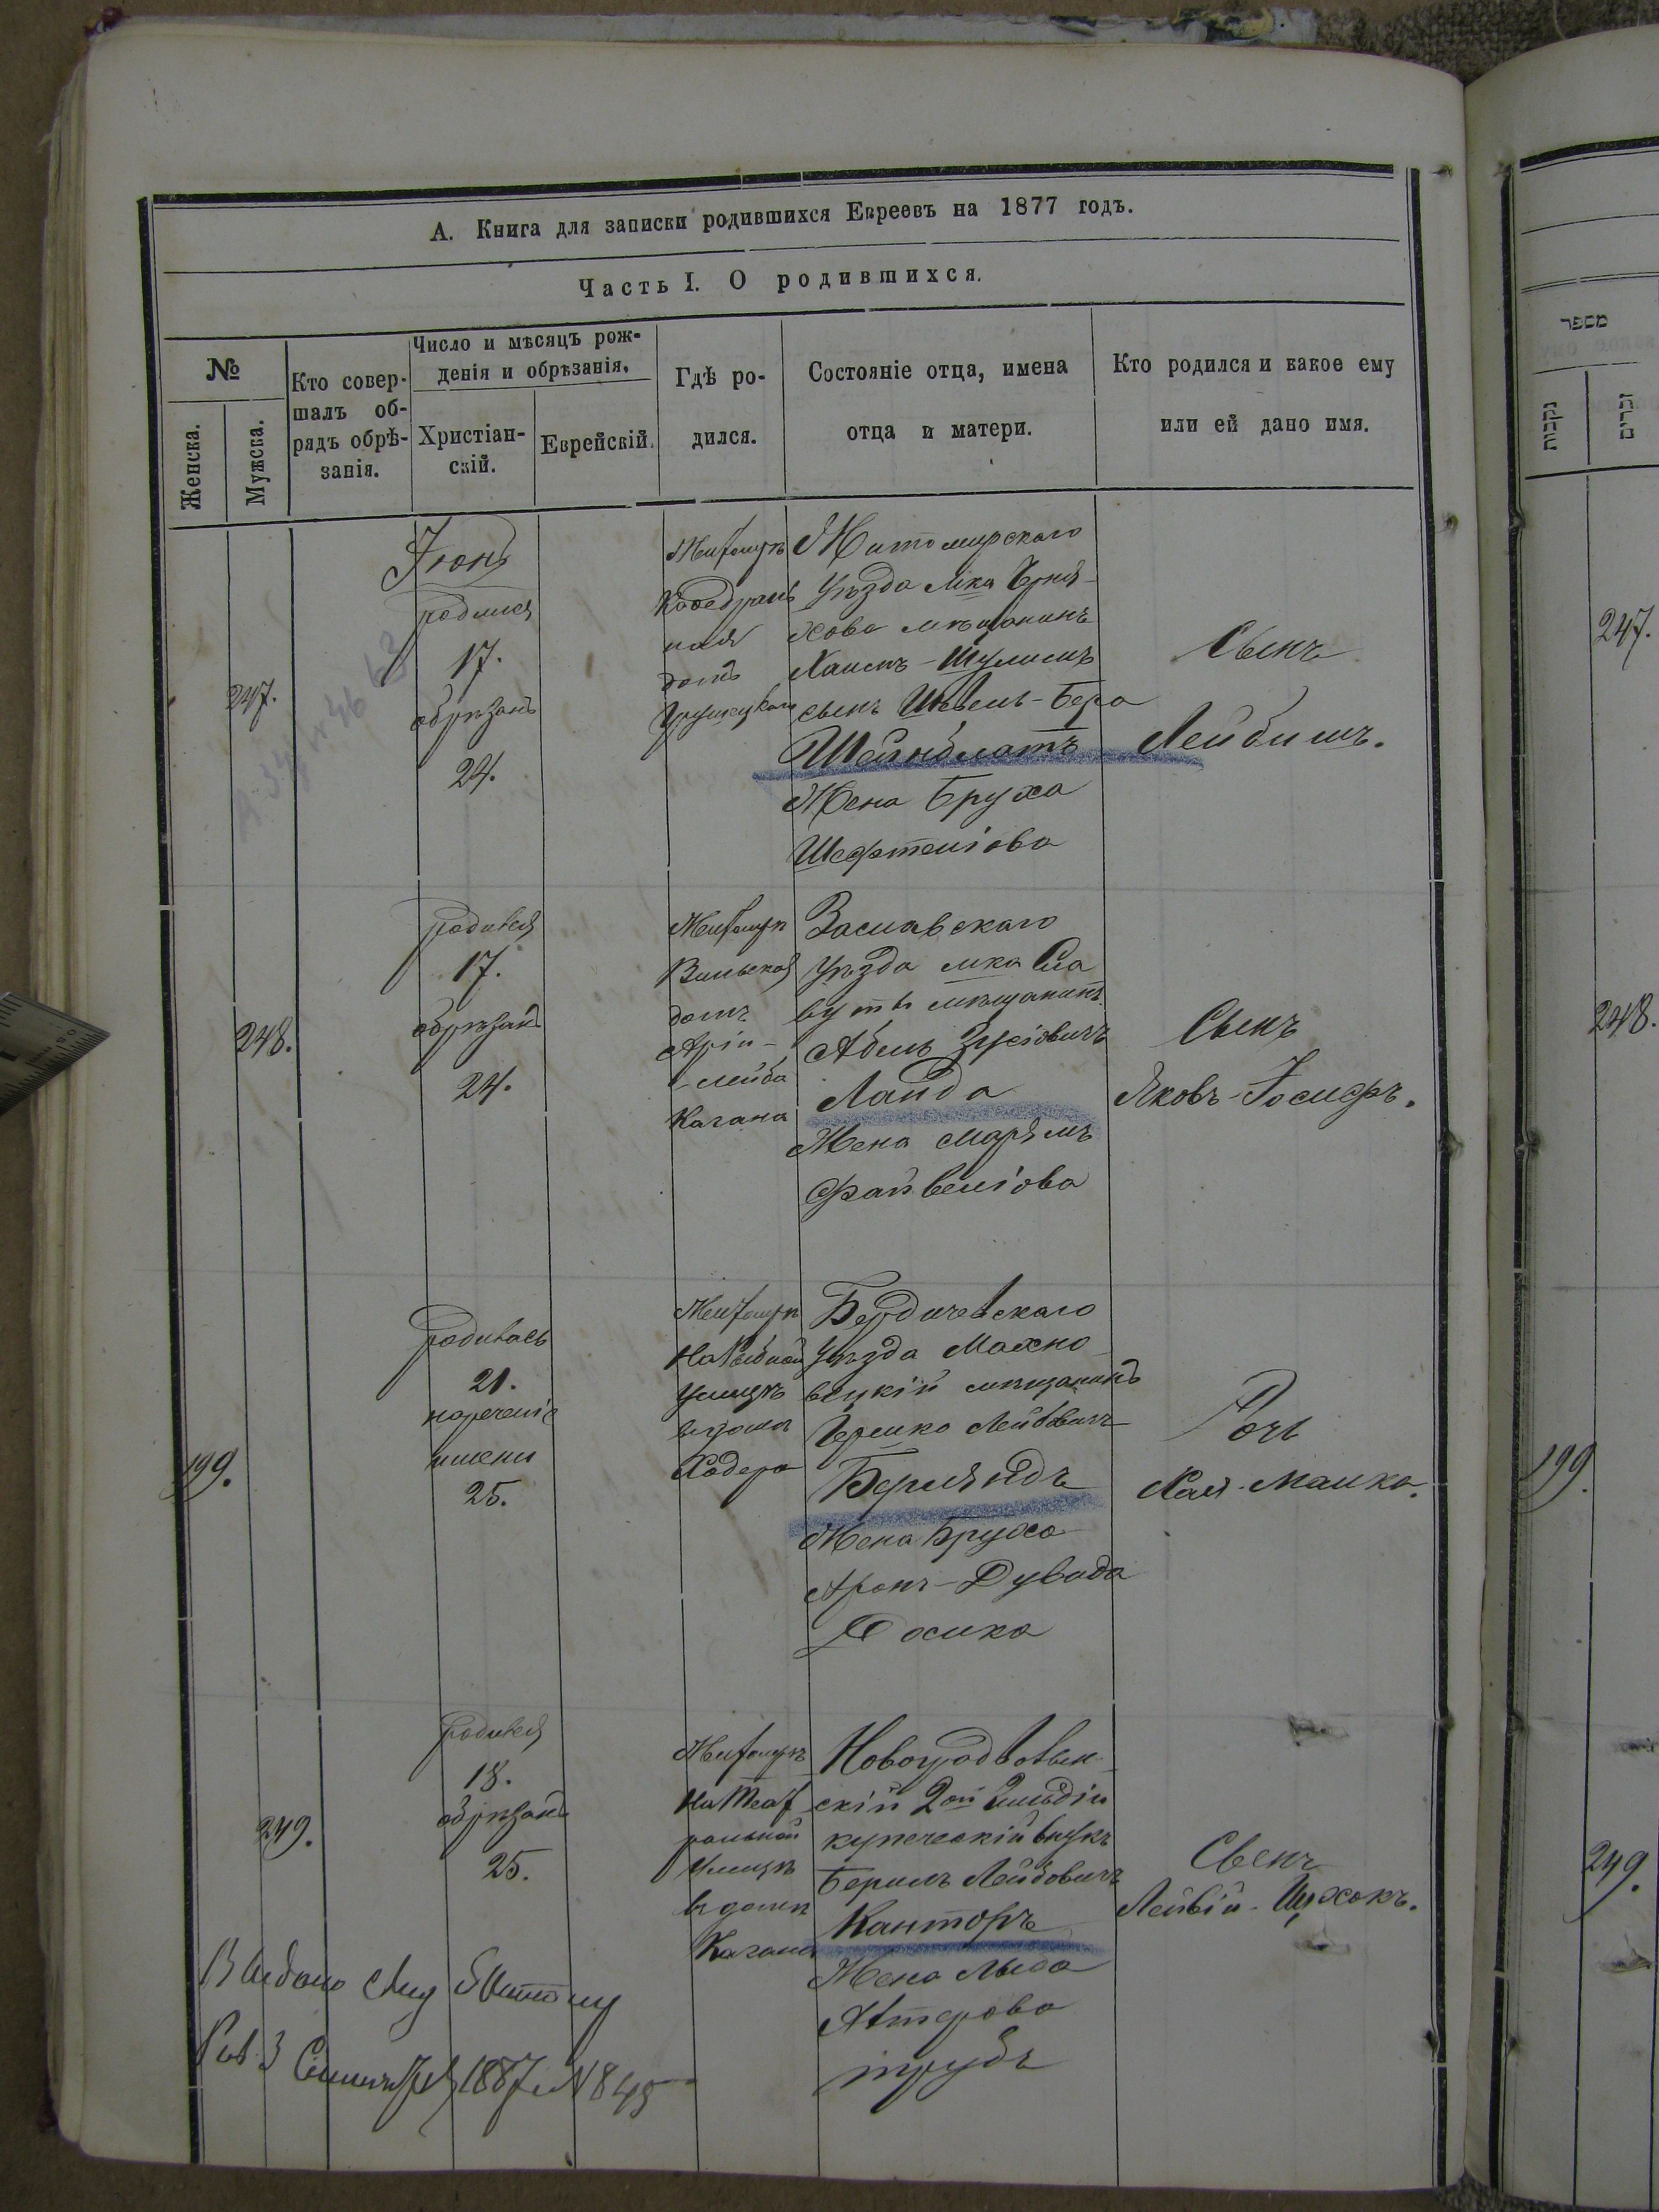 А. Книга для записки родившихся Евреевъ на 1877 годъ.
Часть I. О родившихся.
№
Женска.
Мужска.
Кто совер-
шалъ об-
рядъ обрѣ-
занія.
Число и мѣсяцъ рож-
денія и обрѣзанія.
Христіан-
скій.
Еврейскій.
Гдѣ ро-
дился.
Состояніе отца, имена
отца и матери.
Кто родился и какое ему
или ей дано имя.
מספר
נקבות
זכרים
247.
Іюнь
родился
17.
обрѣзанъ
24.
Житомиръ
Кафедраль
ная
домъ
Житомирскаго
Уѣзда м-ка Черня-
хова мѣщанинъ
Хаимъ-Шулимъ
сынъ Шевель-Бера
Шейнблатъ
Жена Бруха
Шефтеліова
Сынъ
Лейбишъ.
247.
248.
родился
17.
обрѣзанъ
24.
Житомиръ
Вильская
домъ
Аріи-
Лейба
Кагана
Заславскаго
Уѣзда м-ка Сла
вуты мѣщанинъ
Абель Зусіовичъ
Ланда
Жена Марьямъ
Файвеліова
Сынъ
Яковъ-Іосифъ.
248.
199.
родилась
21.
нареченіе
имени
25.
Житомиръ
На Рыбной
Улицѣ
въ домѣ
Ходера
Бердичевскаго
Уѣзда Махно
вецкій мѣщанинъ
Гершко Лейбовичъ
Берляндъ
Жена Бруха
Аронъ-Дувида
Дочь
Хая-Малка.
199.
249.
родился
18.
обрѣзанъ
25.
Житомиръ
На Теат
ральной
Улицѣ
въ домѣ
Кагана
Новоградволын-
скій 2ой Гильдіи
купеческій внукъ
Берилъ Лейбовичъ
Канторъ
Жена
Сынъ
Лейвій-Ицхокъ.
249.
Выдано
3 Сентября 1887 № 845